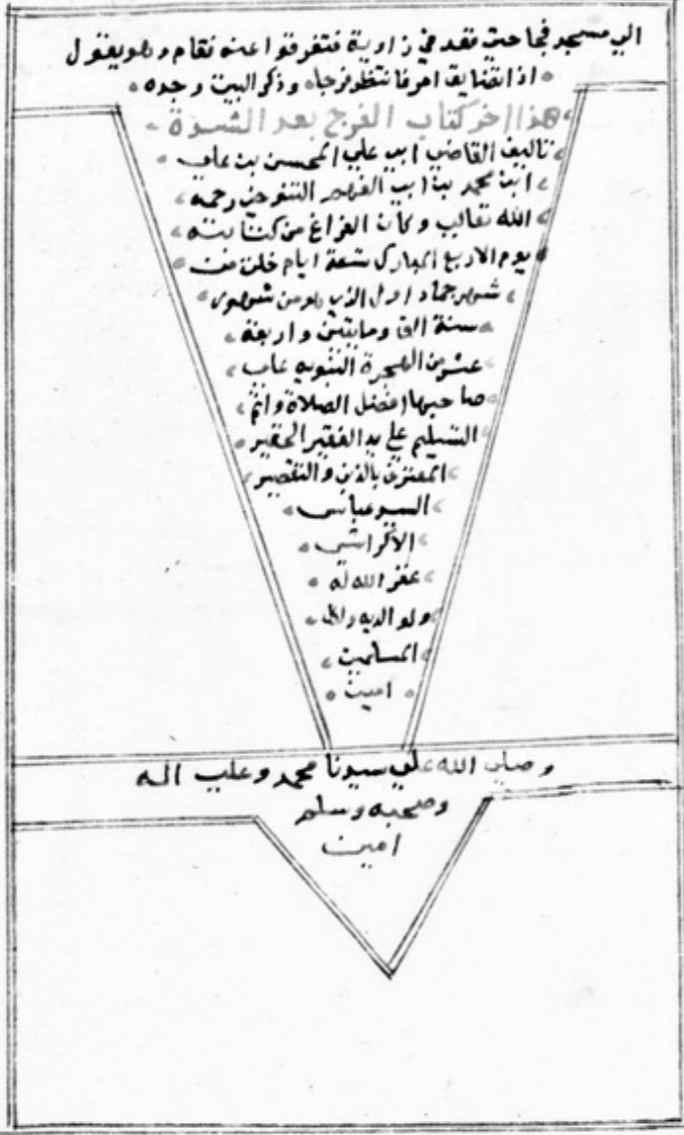 الي مسجد فجا حتي قعد في زاوية فتفرقوا عنه فقام وهو يقول
اذا تضايق امر فانتظر فرجا وذكر البيت وحده
هذا اخر كتاب الفرج بعد الشدة
تاليف القاضي ابي علي المحسن بن علي
ابن محمد بن ابي الفهم التنوخي رحمه
الله تعالي وكان الفراغ من كتابته
يوم الاربع المبارك تسعة ايام خلت من
شهر جماد اول الذي هو من شهور
سنة الف ومايتين واربعة
عشر من الهجرة النبويه علي
صاحبها افضل الصلاة واتم
التسليم علي يد الفقير الحقير
المعترف بالذنب والتقصير
السيد عباس
الاكراشي
غفر الله له
ولوالديه ولكل
المسلمين
امين
وصلي الله علي سيدنا محمد وعلي اله
وصحبه وسلم
امين